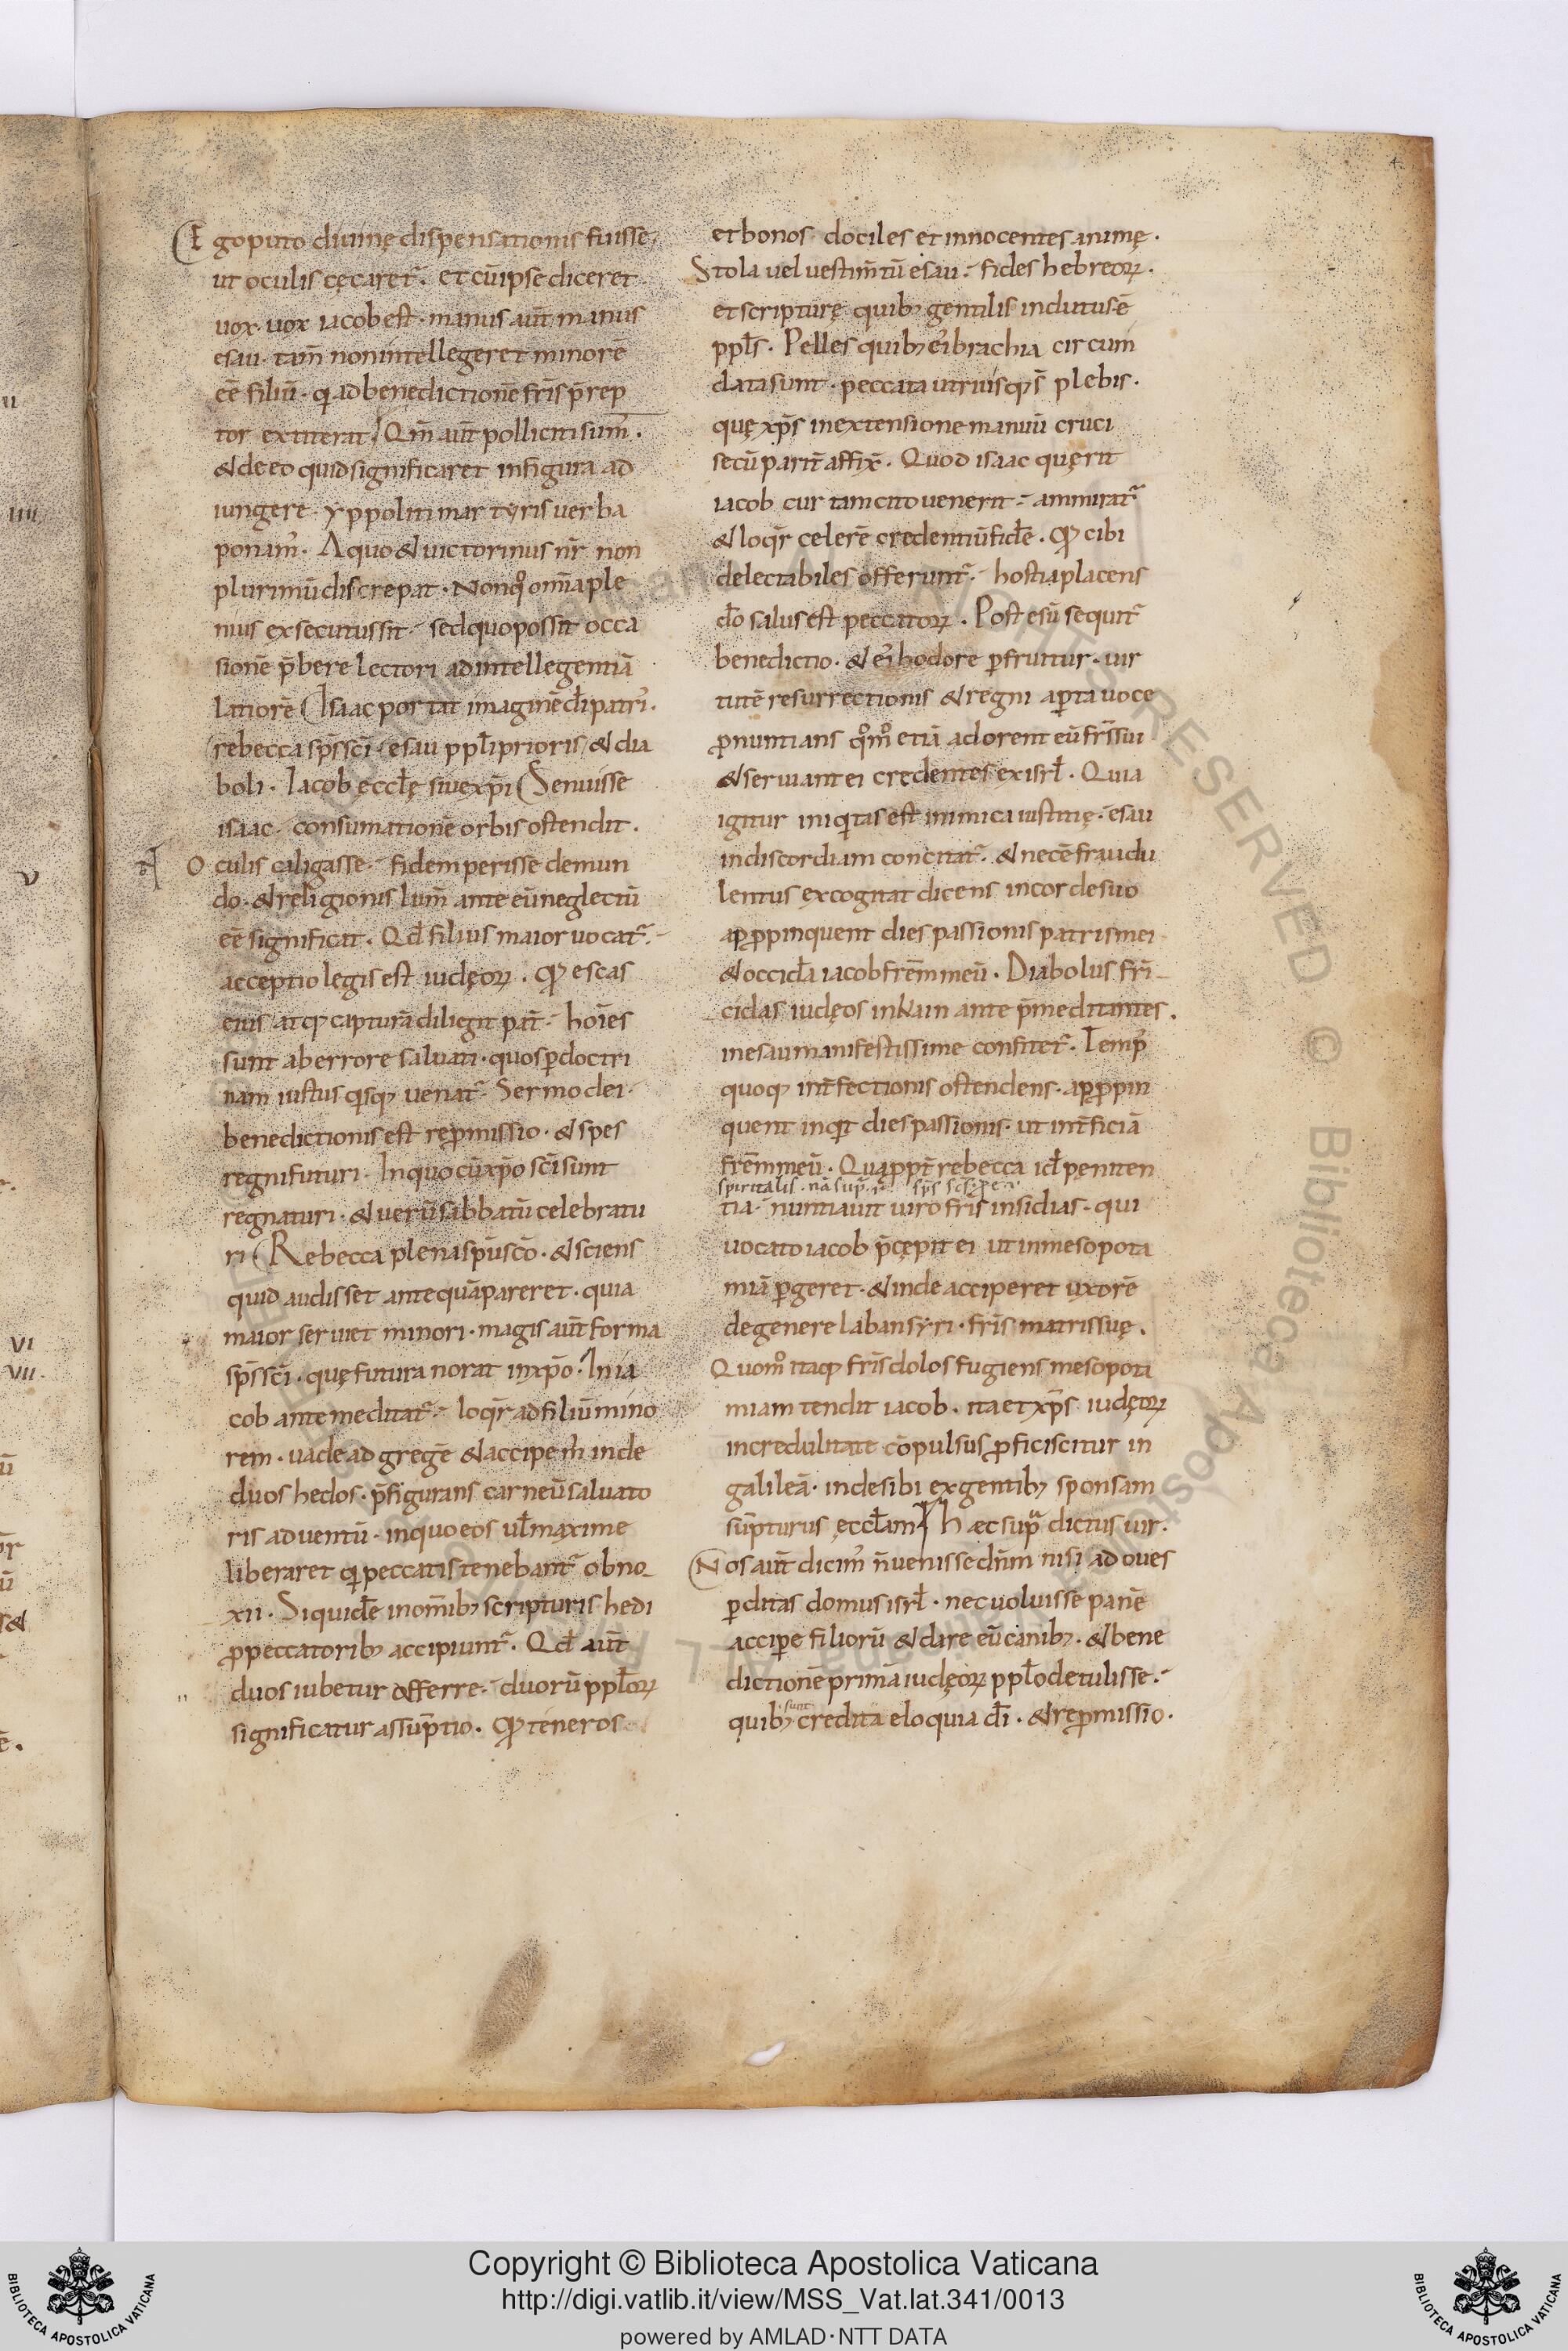 Ego puto diuinę dispensationis fuisse,
ut oculis cęcaret᷑. et cū ipse diceret
uox. uox iacob est. manus aut̄ manus
esau. tam̄ non intellegeret minorē
eē filiū. qui ad benedictionē fr̄is p̄rep
tor extiterat. Qm̄ aut̄ polliciti sum᷒.
& de eo quid significaret in figura ad
iungere. yppoliti martyris uerba
ponam᷒. A quo & uictorinus nr̄ non
plurimū discrepat. Non qͦ om̄ia ple
nius exsecutus sit. sed quo possit occa
sionē p̄bere lectori ad intellegentiā
latiorē Isaac portat imaginē dī patri᷒.
rebecca sp̄s sc̄i. esau ppl̄i prioris & dia
boli. Iacob eccl̄ę siue xp̄i Senuisse
isaac. consumationē orbis ostendit.
Oculis caligasse. fidem perisse de mun
do. & religionis lum̄ ante eū neglectū
eē significat. Qd̄ filius maior uocat᷑.
acceptio legis est iudęoꝝ. Qꝫ escas
eius atqꝫ capturā diligit pat̄. hoīes
sunt ab errore saluati. quos ꝑ doctri
nam iustus qisqꝫ uenat᷑. Sermo dei.
benedictionis est repromissio. & spes
regni futuri. In quo cū xp̄o sc̄i sunt
regnaturi. & uerū sabbatū celebratu
ri Rebecca plena spū sc̄o. & sciens
quid audisset antequā pareret. quia
maior seruiet minori. magis aut̄ forma
sp̄s sc̄i. quę futura norat in xp̄o. In ia
cob ante meditat᷑. loqr̄ ad filiū mino
rem. uade ad gregē & accipe m̄ inde
duos hedos. p̄figurans carneū saluato
ris aduentū. in quo eos ul̄ maxime
liberaret qi peccatis tenebant᷑ obno
xii. Siquidē in om̄ibꝫ scripturis hedi
ꝓ peccatoribꝫ accipiunt᷑. Qd̄ aut̄
duos iubetur offerre. duorū ppl̄oꝝ
significatur assūptio. Qꝫ teneros
et bonos. dociles et innocentes animę.
Stola uel uestim̄tū esau. fides hebreoꝝ.
et scripturę quibꝫ gentilis indutus ē
ppl̄s. Pelles quibꝫ ei᷒ brachia circum
data sunt. peccata utriusqꝫ s̄ plebis.
quę xp̄s in extensione manuū cruci
secū parit̄ affix̄. Quod isaac quęrit
iacob cur tam cito uenerit. ammirat᷑
& loqr̄ celerē credentiū fidē. Qꝫ cibi
delectabiles offerunt᷑. hostia placens
dō salus est peccatoꝝ. Post esū sequit᷑
benedictio. & ei᷒ hodore ꝑfruitur. uir
tutē resurrectionis & regni aꝑta uoce
ꝓnuntians qͦmͦ etiā adorent eū fr̄s sui
& seruiant ei credentes ex isrl̄. Quia
igitur iniqitas est inimica iustitię. esau
in discordiam concitat᷑. & necē fraudu
lentus excogitat dicens in corde suo
apꝓpinquent dies passionis patris mei
& occidā iacob fr̄em meū. Diabolus fr̄i
cidas iudęos in kain ante p̄meditantes.
in esau manifestissime confitet᷑. Temp᷒
quoqꝫ int̄fectionis ostendens. apꝓpin
quent inqit dies passionis. ut int̄ficiā
fr̄em meū. Quapropt̄ rebecca id̄ peniten
tia. nuntiauit uiro fr̄is insidias. qui
uocato iacob p̄cępit ei ut in mesopota
miā ꝑgeret. & inde acciperet uxorē
de genere laban syri. fr̄is matris suę.
Quomͦ itaqꝫ fr̄is dolos fugiens mesopota
miam tendit iacob. ita et xp̄s iudęoꝝ
incredulitate cōpulsus ꝓficiscitur in
galileā. inde sibi ex gentibꝫ sponsam
sūpturus ęccl̄am Hæc supᵃ dictus uir.
Nos aut̄ dicim᷒ n̄ uenisse dn̄m nisi ad oues
ꝑditas domus isrl̄. nec uoluisse panē
accipe filiorū & dare eū canibꝫ. & bene
dictionē primā iudęoꝝ ppl̄o detulisse.
quibꝫ sunt credita eloquia dī. & repromissio.
4
II
IIII
V
VI
VII.
Copyright © Biblioteca Apostolica Vaticana
http://digi.vatlib.it/view/MSS_Vat.lat.341/0013
powered by AMLAD·NTT DATA
BIBLIOTECA APOSTOLICA VATICANA
BIBLIOTECA APOSTOLICA VATICANA